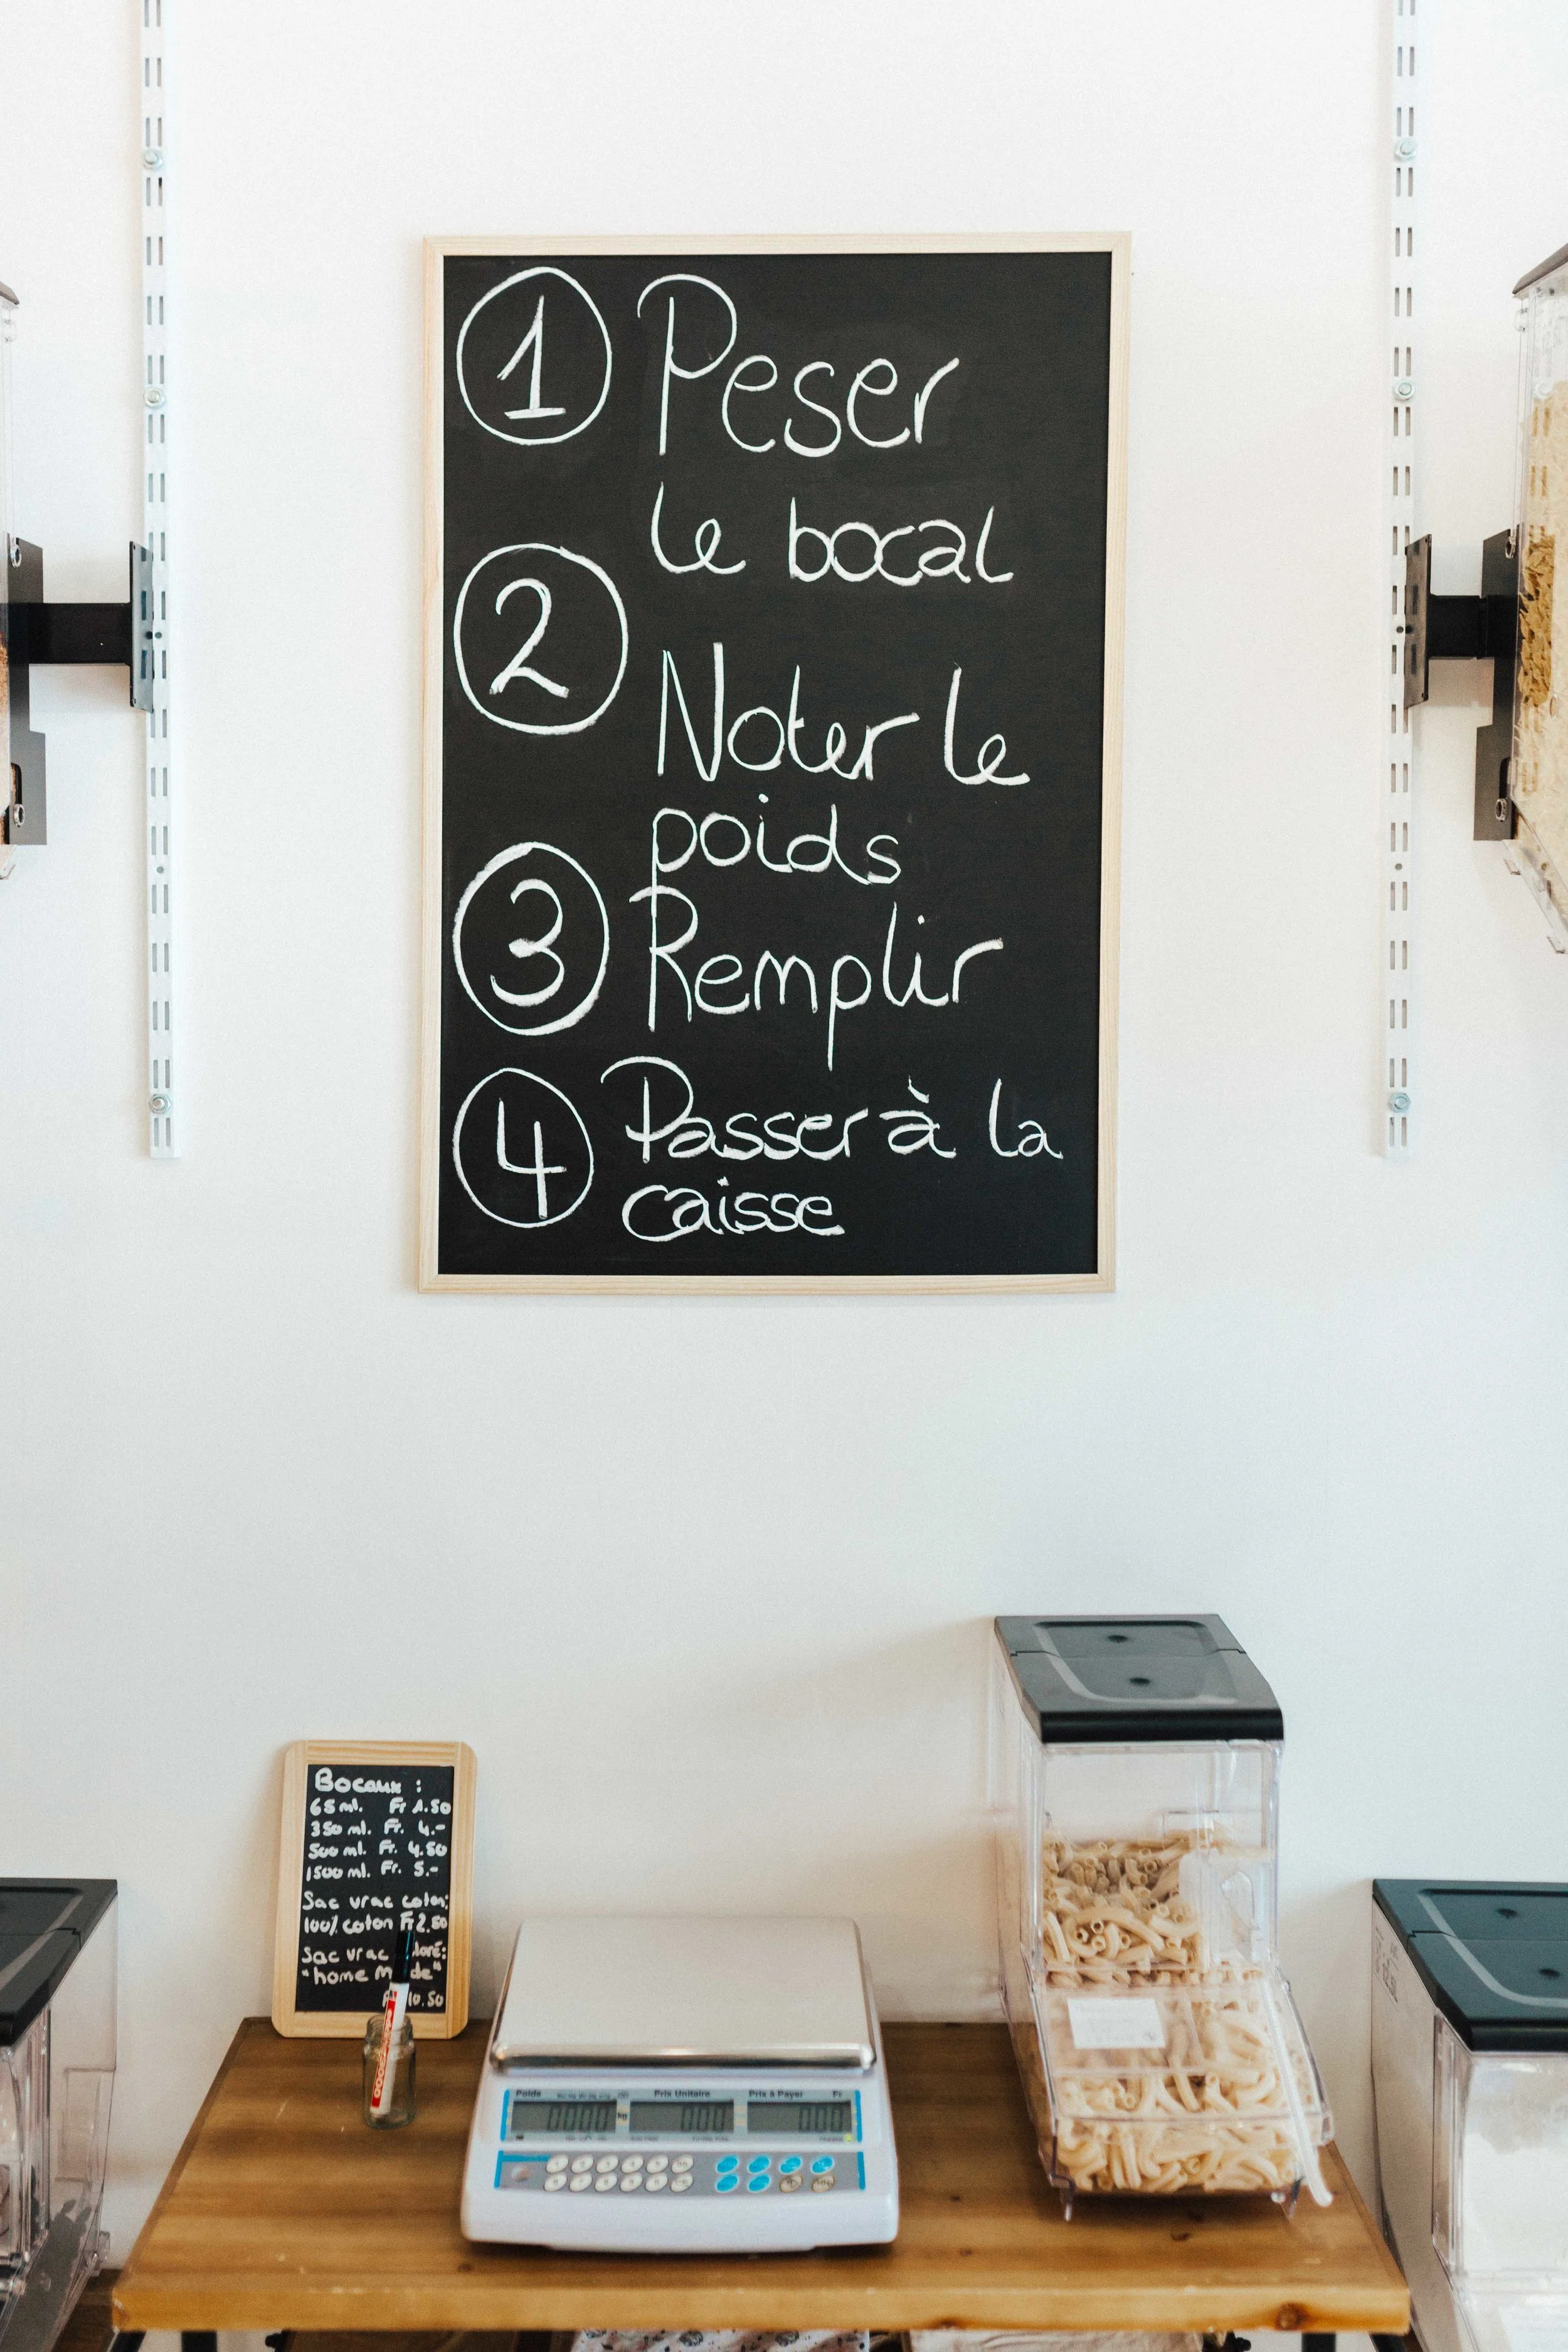 1 Peser
le bocal
2 Noter le
poids
3 Remplir
4 Passer à la
caisse
Bocaux :
65 ml. Fr 1.50
350 ml. Fr. 4.-
500 ml. Fr. 4.50
1500 ml. Fr. 5.-
Sac vrac coton:
100% coton Fr 2.50
Sac vrac
"home M de"
10.50
Poids Prix Unitaire Prix à Payer Fr
0000 kg 000 000